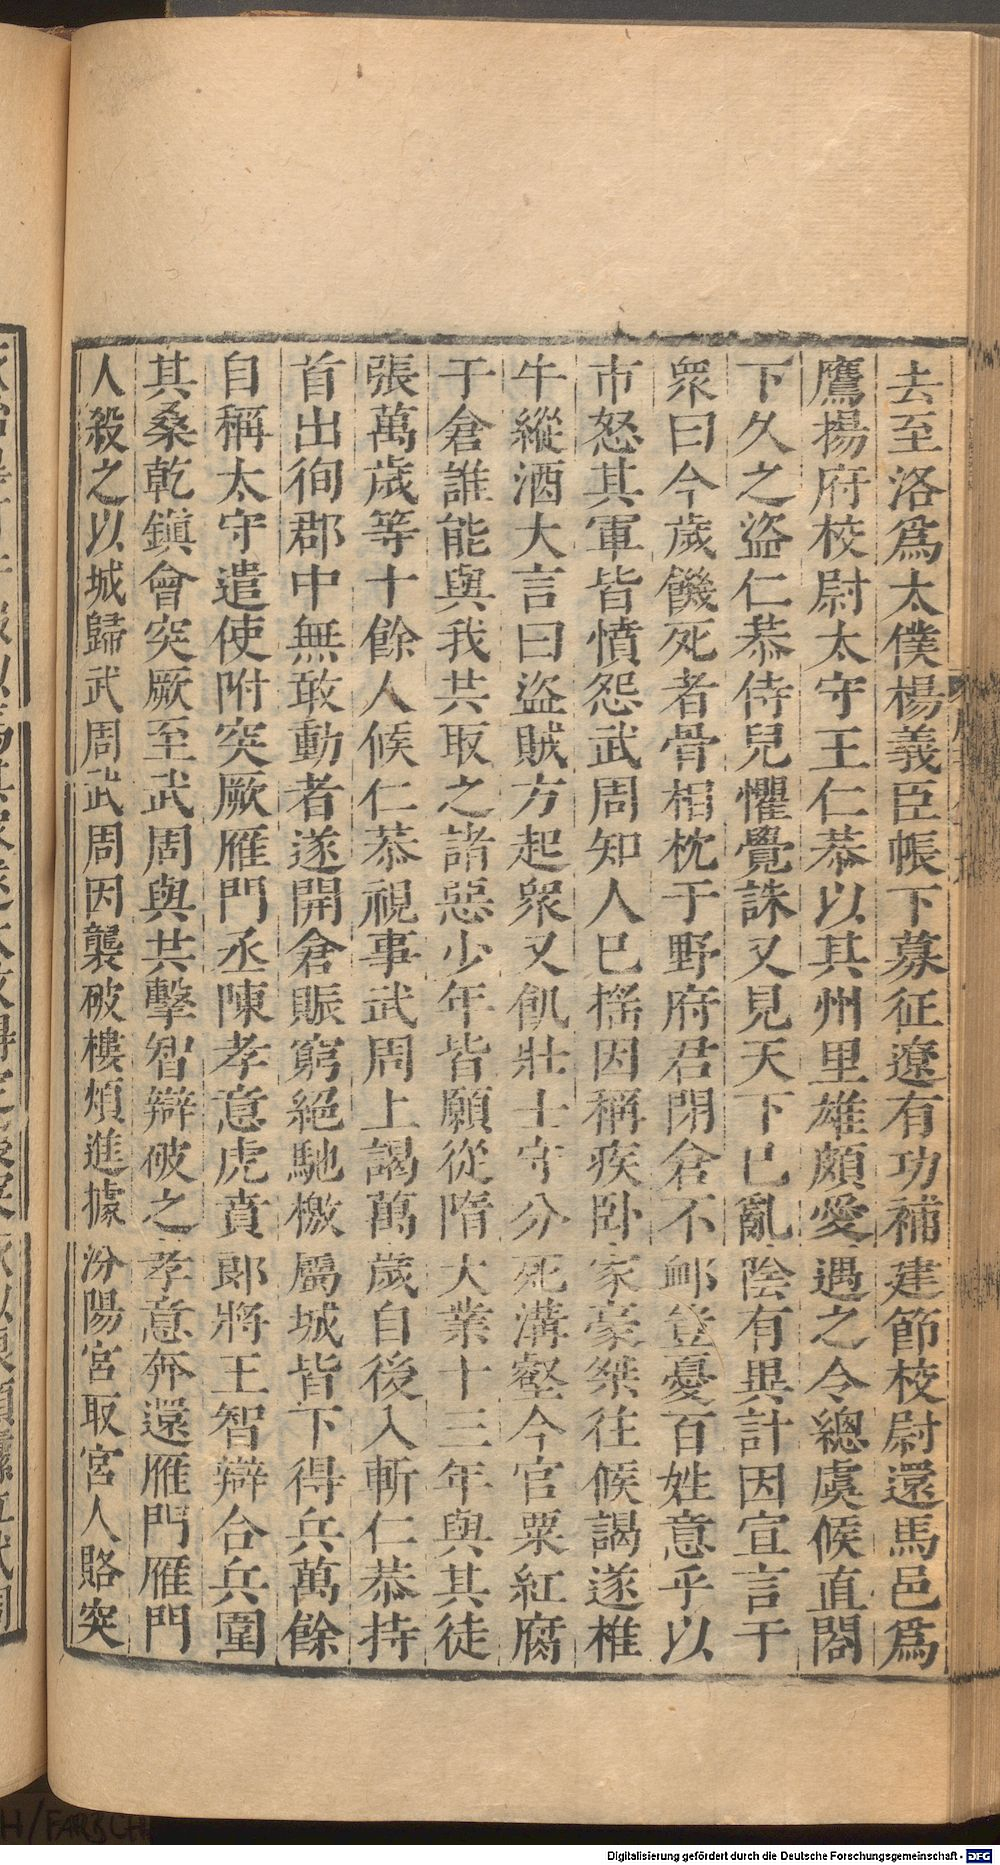 去至洛爲太僕楊義臣帳下募征遼有功補建節校尉還馬邑爲
鷹揚府校尉太守王仁恭以其州里雄頗愛遇之令總虞候直閤
下久之盜仁恭侍兒懼覺誅又見天下已亂陰有異計因宣言于
衆曰今歲饑死者骨相枕于野府君閉倉不䘏豈憂百姓意乎以
市怒其軍皆憤怨武周知人已搖因稱疾卧家豪桀往候謁遂椎
牛縱酒大言曰盜賊方起衆又飢壯士守分死溝壑今官粟紅腐
于倉誰能與我共取之諸惡少年皆願從隋大業十三年與其徒
張萬歲等十餘人候仁恭視事武周上謁萬歲自後入斬仁恭持
首出徇郡中無敢動者遂開倉賑窮絕馳檄屬城皆下得兵萬餘
自稱太守遣使附突厥雁門丞陳孝意虎賁郎將王智辯合兵圍
其桑乾鎮會突厥至武周與共擊智辯破之孝意奔還雁門雁門
人殺之以城歸武周武周因襲破樓煩進據汾陽宮取宮人賂突
Digitalisierung gefördert durch die Deutsche Forschungsgemeinschaft - DFG